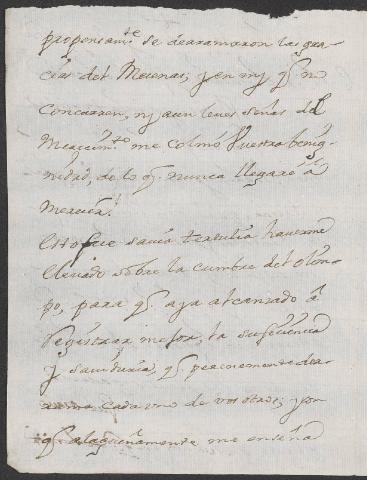 propensam.te se derramaron las gra-
cias del Mecenas, y en mj q.e no
concurren, nj aun leves señas del
Merecim.to me colmó Vuestra benig-
nidad, de lo q.e nunca llegaré á
merecer.
Esto fue savia tertulia haverme
llevado sobre la cumbre del olim-
po, para q.e aya alcanzado á
registrar mejor, la suficiencia
y saviduria, q.e perenemente der-
rama cada uno de vosotros, y con
q.e alagueñamente me enseña